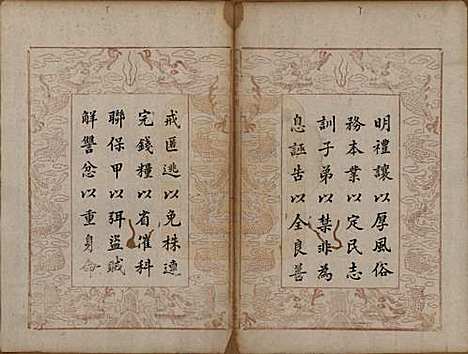 明禮讓以厚風俗
務本業以定民志
訓子弟以禁非為
息誣告以全良善
戒匿逃以免株連
完錢糧以省催科
聯保甲以弭盜賊
解讐忿以重身命